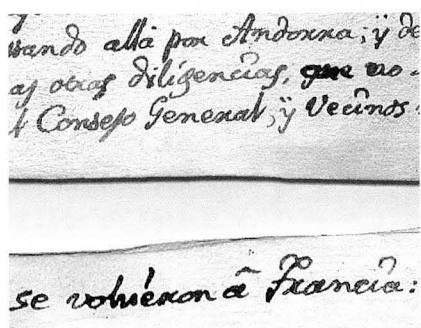 sando allà por Andorra; ÿ de
as otras diligencias, que no
l Consejo General, ÿ Vecinos
se volviéron â Francia: